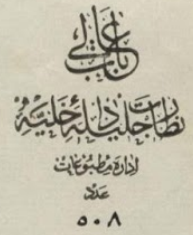 باب عالی
نظارت جلیلهٔ داخلیه
ادارهٔ مطبوعات
عدد
٥٠٨